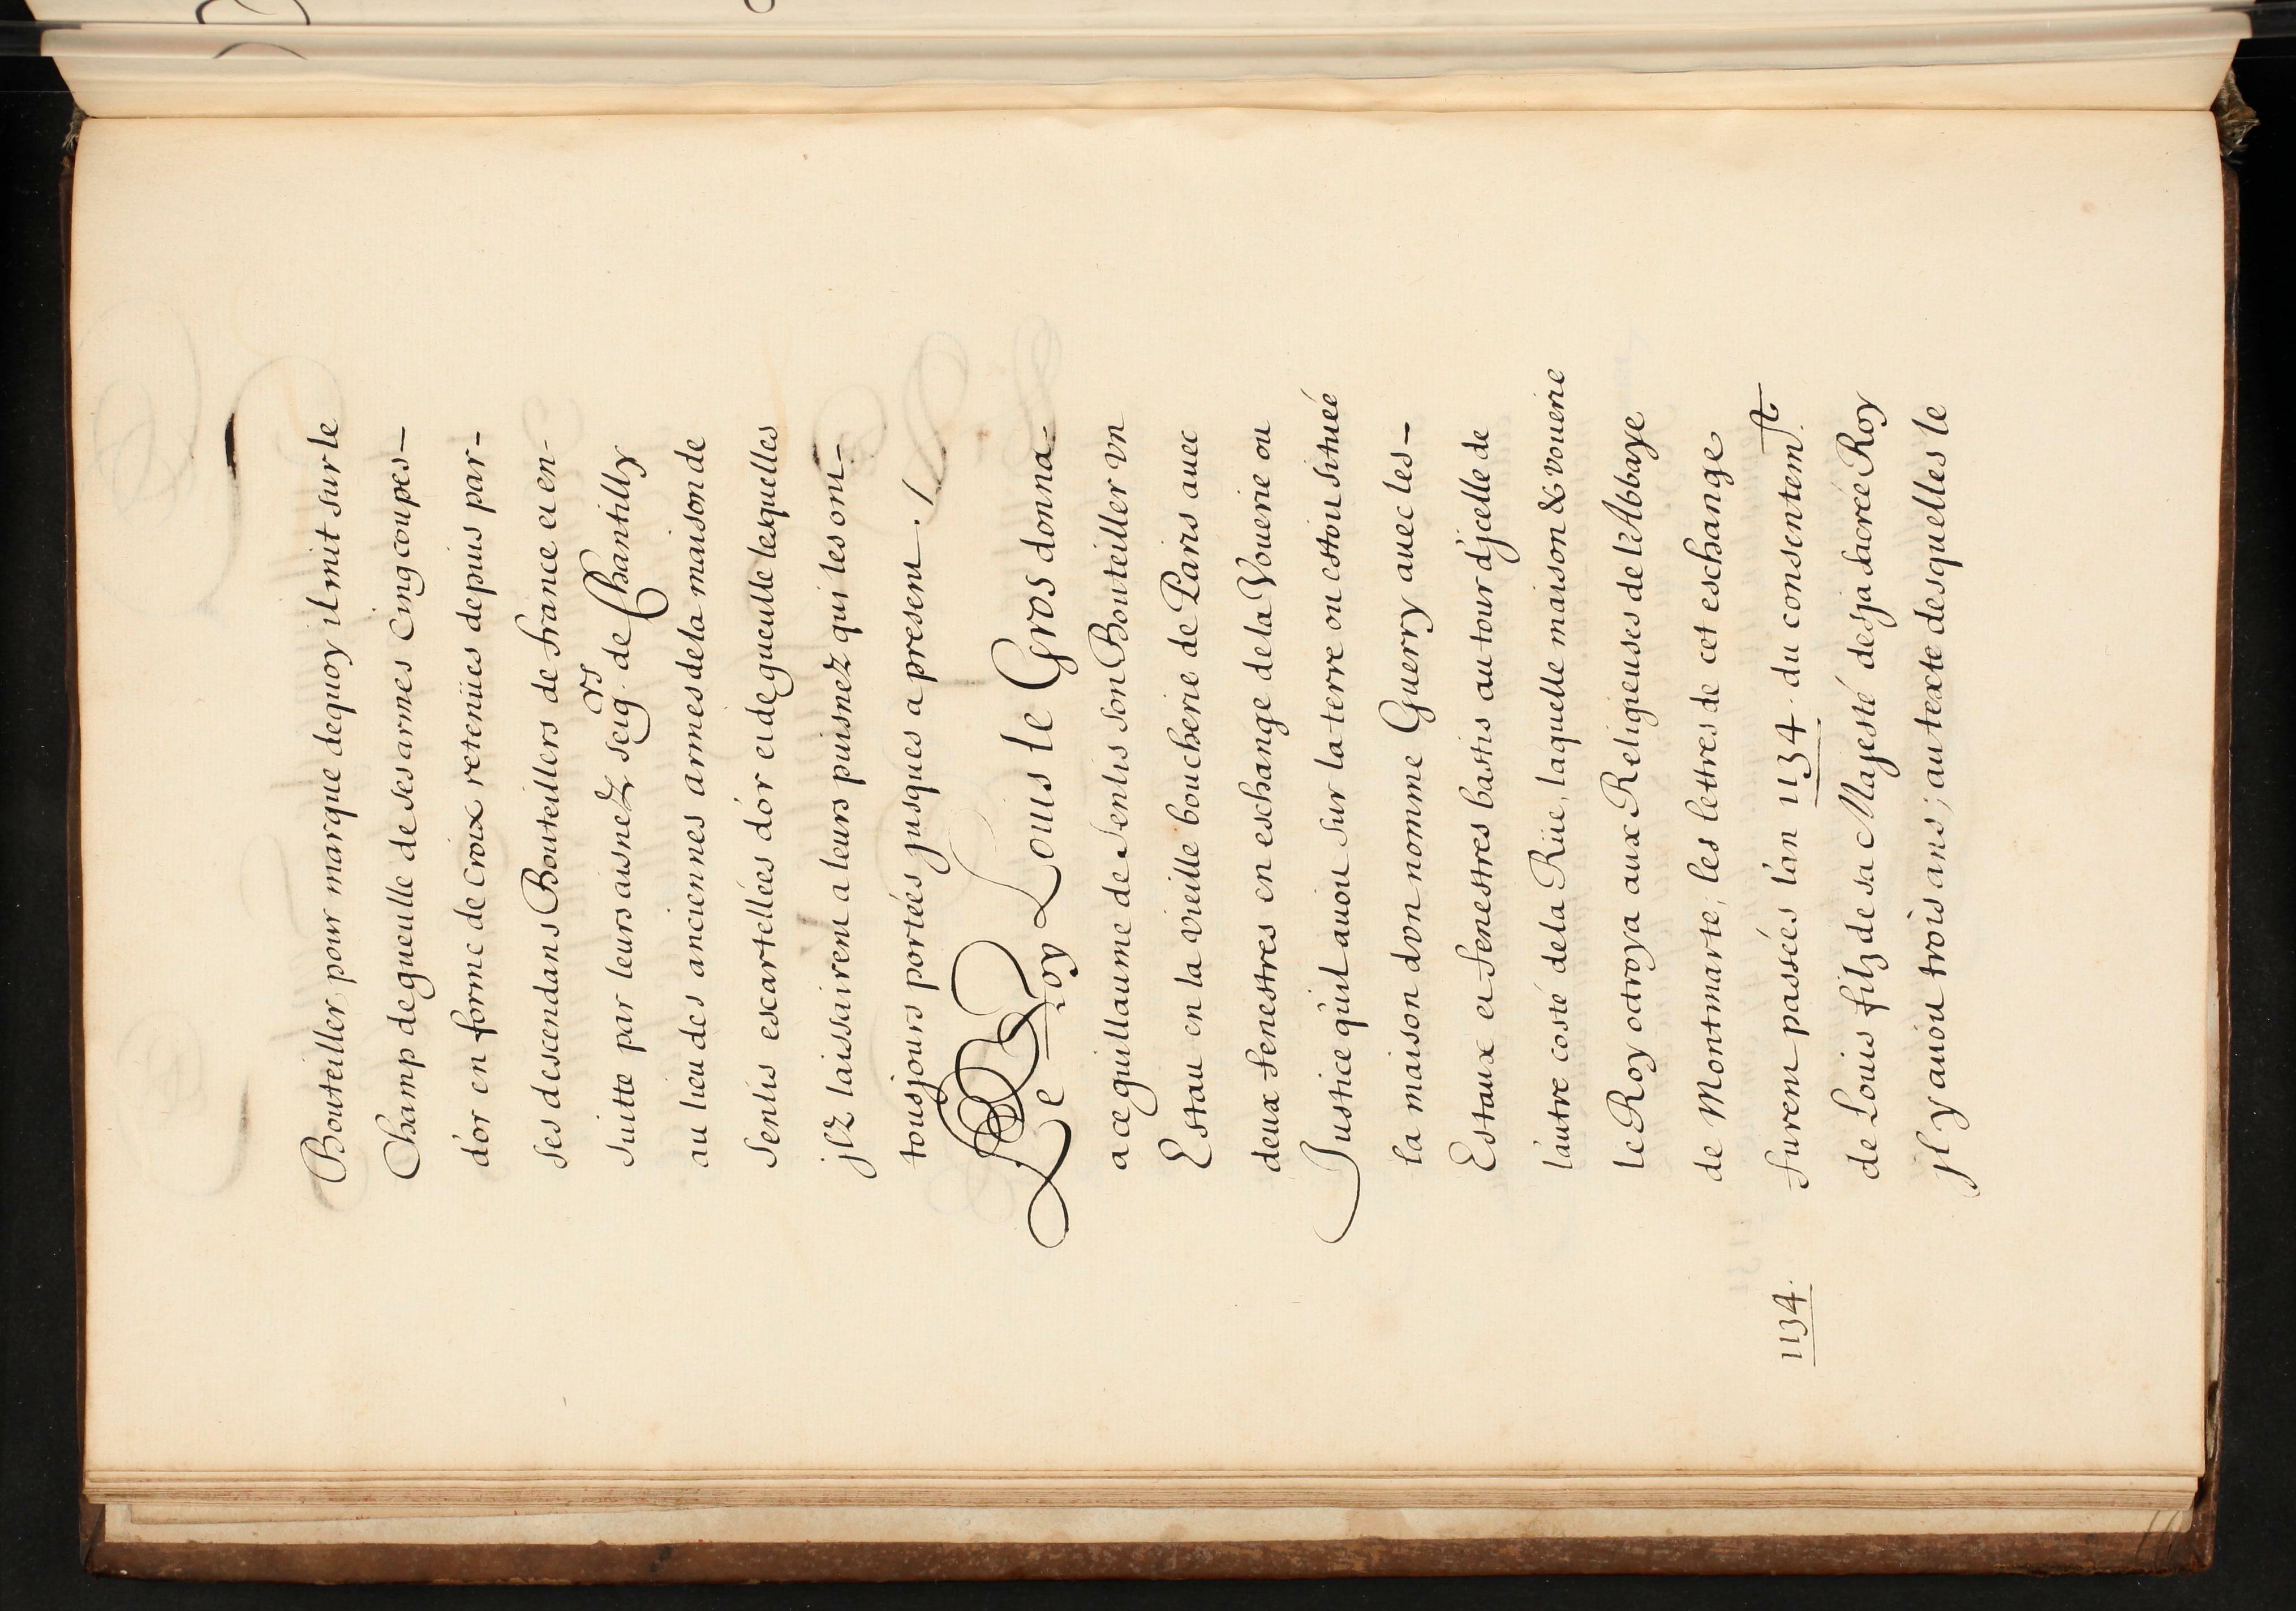 Bouteiller, pour marque dequoy il mit sur le
Champ de gueulle de ses armes Cinq coupes_
d'or en forme de croix retenües depuis par_
ses descendans Bouteillers de france et en-
suitte par leurs aisnez seig.rs de Chantilly
au lieu des anciennes armes de la maison de
Senlis escartellées d'or et de gueulle lesquelles
jlz laissairent a leurs puisnez qui les ont_
tousjours portées jusques a present ./
Le Roy Louis le Gros donna_
a ce guillaume de Senlis son Bouteiller vn
Estau en la vieille boucherie de Paris auec
deux fenestres en eschange de la Vouerie ou
Justice qu'il auoit sur la terre ou estoit située
la maison d'vn nomme Guerry auec les_
Estaux et fenestres bastis autour d'jcelle de
l'autre costé de la Rüe, laquelle maison & vouerie
le Roy octroya aux Religieuses de l'Abbaye
de Montmarte; les lettres de cet eschange
1134. furent passées l'an 1134. du consentem.t
de Louis filz de sa Majesté desja sacrée Roy
jl y auoit trois ans; au texte desquelles le